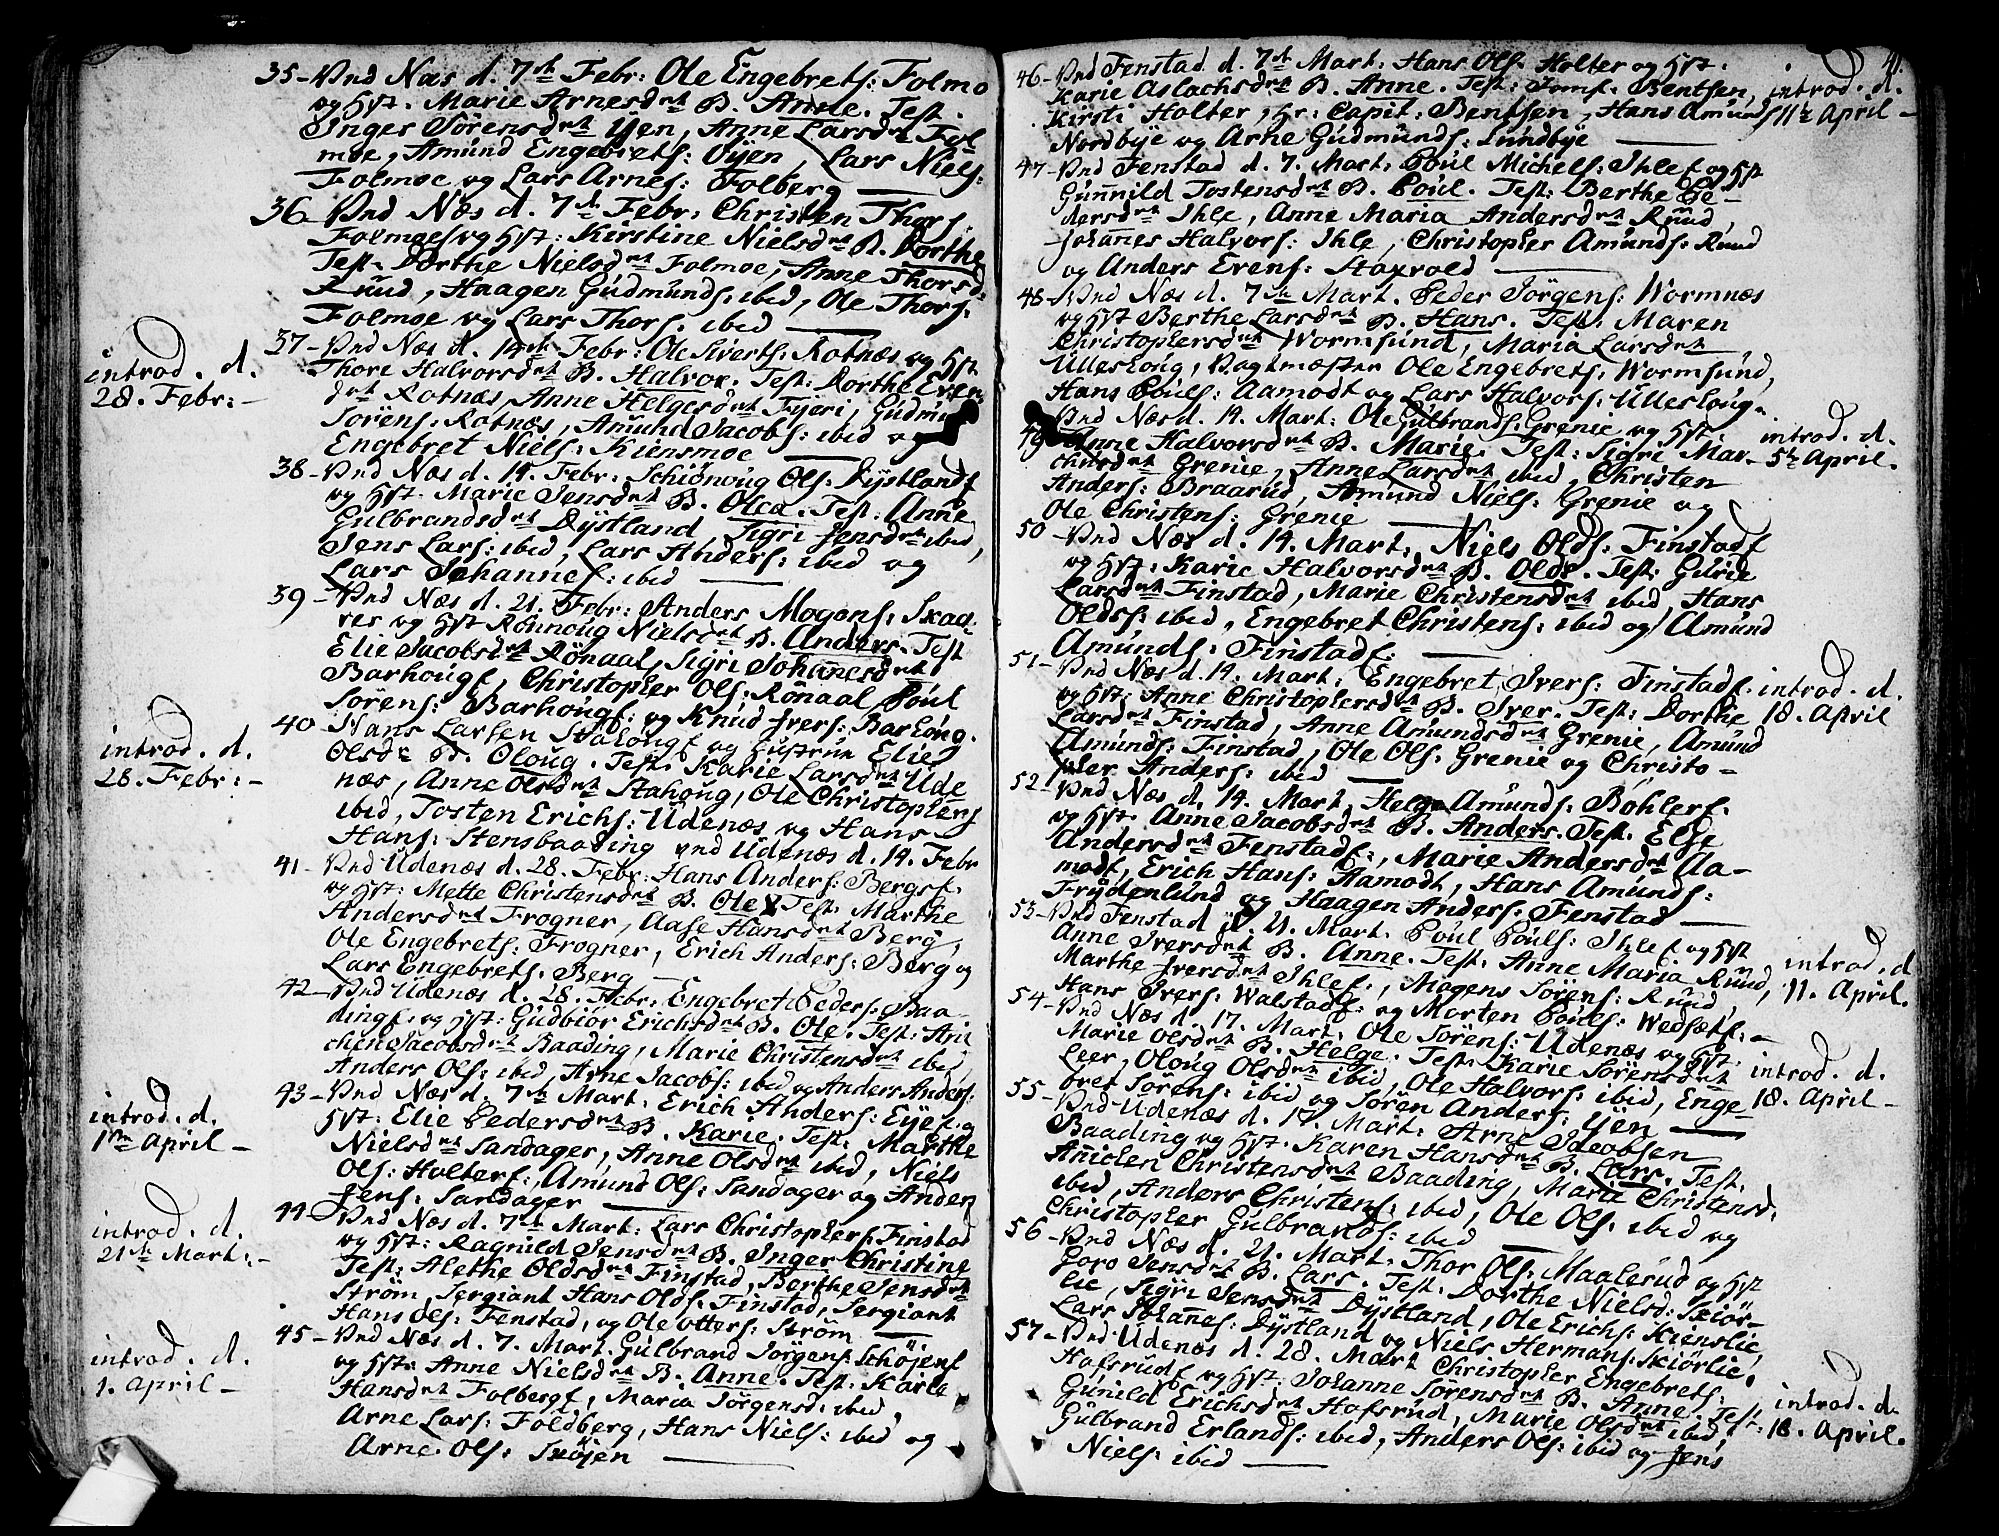 35 - Und Næs d. 7de Febr: Ole Engebrets: Folmo
og Hst. Marie Arnesdat B. Anne. Test.
Inger Sörensdat Ijen, Anne Larsdat Fol
moe, Amund Engebrets: Oÿen, Lars Niels:
Folmoe og Lars Arnes: Folberg
36 - Und Næs d. 7de Febr: Christen Thors:
Folmoe og Hst: Kirstine Nielsdat B. Dorthe
Test. Dorthe Nielsdat Folmoe, Anne Thorsd:
Ruud, Haagen Gudmunds: ibid, Ole Thors:
Folmoe og Lars Thors: ibid
introd. d.
28. Febr: -
37 - Und Næs d. 14de Febr: Ole Siverts: Rotnæs og Hst
Thore Halvorsdat B. Halvor. Test: Dorthe Even
dat Rotnæs, Anne Helgesdat Fjeri, Gudmu
Sörens: Rotnæs, Amund Jacobs: ibid og
Engebret Niels: Kiensmoe
38 - Und Næs d. 14. Febr: Schiönoug Ols: Dÿstland
og Hst. Marie Jensdat B. Olea. Test: Anne
Gulbrandsdat Dÿstland Sigri Jensdat ibid,
Jens Lars: ibid, Lars Anders: ibid og
Lars Johannes: ibid
39 - Und Næs d. 21. Febr: Anders Mogens: Skag
res og Hst Rönnoug Nielsdat B. Anders. Test
Elie Jacobsdat Rönaal, Sigri Johannesdat
Barhoug, Christopher Ols: Rönaal Poul
Sörens: Barhoug og Knud Ivers: Barhoug.
introd. d.
28. Febr: -
40 - Hans Larsen Stahoug og Hustrue Elie
Olsdr B. Oloug. Test: Karie Larsdat Ude
næs, Anne Olsdat Stahoug, Ole Christophers
ibid, Tosten Erichs: Udenæs og Hans
Hans: Stensbaading und Udenæs d. 14. Febr
41 - Und Udenæs d. 28. Febr: Hans Anders: Berg
og Hst: Mette Christensdat B. Ole. Test. Marthe
Andersdat Frogner, Aase Hansdat Berg,
Ole Engebrets: Frogner, Erich Anders: Berg og
Lars Engebrets: Berg
42 - Und Udenæs d. 28. Febr: Engebret Peders: Baa
ding og Hst: Gudbiör Erichsdat B. Ole. Test: Ani
chen Jacobsdat Baading, Marie Christensdat ibid,
Anders Ols: ibid, Arne Jacobs: ibid og Anders Anders:
introd. d.
1ste April -
43 - Und Næs d. 7de Mart: Erich Anders: Eÿe og
Hst: Elie Pedersdat B. Karie. Test: Marthe
Nielsdat Sandager, Anne Olsdat ibid, Niels
Ols: Holter, Amund Ols: Sandager og Anders
Jens: Sandager
introd. d.
21de Mart: -
44 - Und Næs d. 7de Mart: Lars Christophers: Finstad
og Hst: Ragnild Jensdat B. Inger Christine
Test: Alethe Oldsdat Finstad, Berthe Jensdat
Ström, Sergiant Hans Olds: Finstad, Sergiant
Hans Ols: Fenstad, og Ole Otters: Ström
introd. d.
1. April -
45 - Und Næs d. 7. Mart. Gulbrand Jörgens: Schöjen
og Hst: Anne Nielsdat B. Anne. Test: Karie
Hansdat Folberg, Maria Jörgensd: ibid,
Arne Lars: Foldberg, Hans Niels: ibid og
Arne Ols: Skÿjen
41.
46 - Und Fenstad d. 7de Mart: Hans Ols: Holter og Hst.
Karie Aslachsdat B. Anne. Test: Jomf. Bentsen,
Kirsti Holter, Hr: Capit: Bentsen, Hans Amunds
Nordbÿe og Arne Gudmunds: Lundbÿe
introd. d.
11te April -
47 - Und Fenstad d. 7. Mart. Poul Michels: Ihle og Hst
Gunnild Tostensdat B. Poul. Test: Berthe Pe-
dersdat Ihle, Anne Maria Andersdat Ruud,
Johannes Halvors: Ihle, Christopher Amunds: Ruud
og Anders Evens: Staxvold
48 - Und Næs d. 7de Mart. Peder Jörgens: Wormnæs
og Hst Berthe Larsdat B. Hans. Test. Maren
Christophersdat Wormsund, Maria Larsdat
Ulleshoug, Vagtmester Ole Engebrets: Wormsund,
Hans Pouls: Aamodt og Lars Halvors: Ulleshoug.
49 Und Næs d. 14. Mart: Ole Gulbrands: Grenie og Hst:
Anne Halvorsdat B. Marie. Test: Sigri Mar-
chusdat Grenie, Anne Larsdat ibid, Christen
Anders: Braarud, Amund Niels: Grenie og
Ole Christens: Grenie
introd. d.
5te April.
50 - Und Næs d. 14. Mart. Niels Olds: Finstad
og Hst: Karie Halvorsdat B. Olds. Test: Gurie
Larsdat Finstad, Marie Christensdat ibid, Hans
Olds: ibid, Engebret Christens: ibid og Amund
Amunds: Finstad
51 - Und Næs d. 14. Mart: Engebret Ivers: Finstad
og Hst: Anne Christophersdat B. Iver. Test: Dorthe
Larsdat Finstad, Anne Amundsdat Grenie, Amund
Amunds: Finstad, Ole Ols: Grenie og Christo-
pher Anders: ibid
introd. d.
18. April
52 - Und Næs d. 14. Mart. Helge Amunds: Böhler
og Hst. Anne Jacobsdat B. Anders. Test. Else
Andersdat Fenstad, Marie Andersdat Aa-
modt, Erich Hans: Aamodt, Hans Amunds:
Frÿdenlund og Haagen Anders: Fenstad
53 - Und Fenstad d. 21. Mart. Poul Pouls: Ihle og Hst
Anne Iversdat B. Anne. Test. Anne Maria Ruud,
Marthe Iversdat Ihle, Mogens Sörens: Ruud
Hans Ivers: Walstad og Morten Pouls: Wedsæt
introd. d
11. April.
54 - Und Næs d. 17. Mart. Ole Sörens: Udenæs og Hst.
Marie Olsdat B. Helge. Test. Karie Sörensdat
Leer, Oloug Olsdat ibid, Ole Halvors: ibid, Enge
bret Sörens: ibid og Sören Anders: Ijen
introd. d.
18. April -
55 - Und Udenæs d. 17. Mart. Arne Jacobsen
Baading og Hst. Karen Hansdat B. Lars. Test.
Anichen Christensdat Baading, Marie Christensd:
ibid, Anders Christens: ibid, Ole Ols: ibid og
Christopher Gulbrands: ibid
56 - Und Næs d. 21. Mart. Thor Ols: Maalerud og Hst
Goro Jensdat B. Lars. Test. Dorthe Nielsd: Skiör-
lie, Sigri Jensdat Dÿstland, Ole Erichs: Kienslie,
Lars Johannes: Dÿstland og Niels Hermans: Skiörlie,
57 - Und Udenæs d. 28. Mart Christopher Engebrets:
Hofsrud og Hst: Johanne Sörensdat B. Anne Test.
Gunild Erichsdat Hofsrud, Marie Olsdat ibid:
Gulbrand Erlands: ibid, Anders Ols: ibid og Jens
Niels: ibid
introd. d.
18. April.